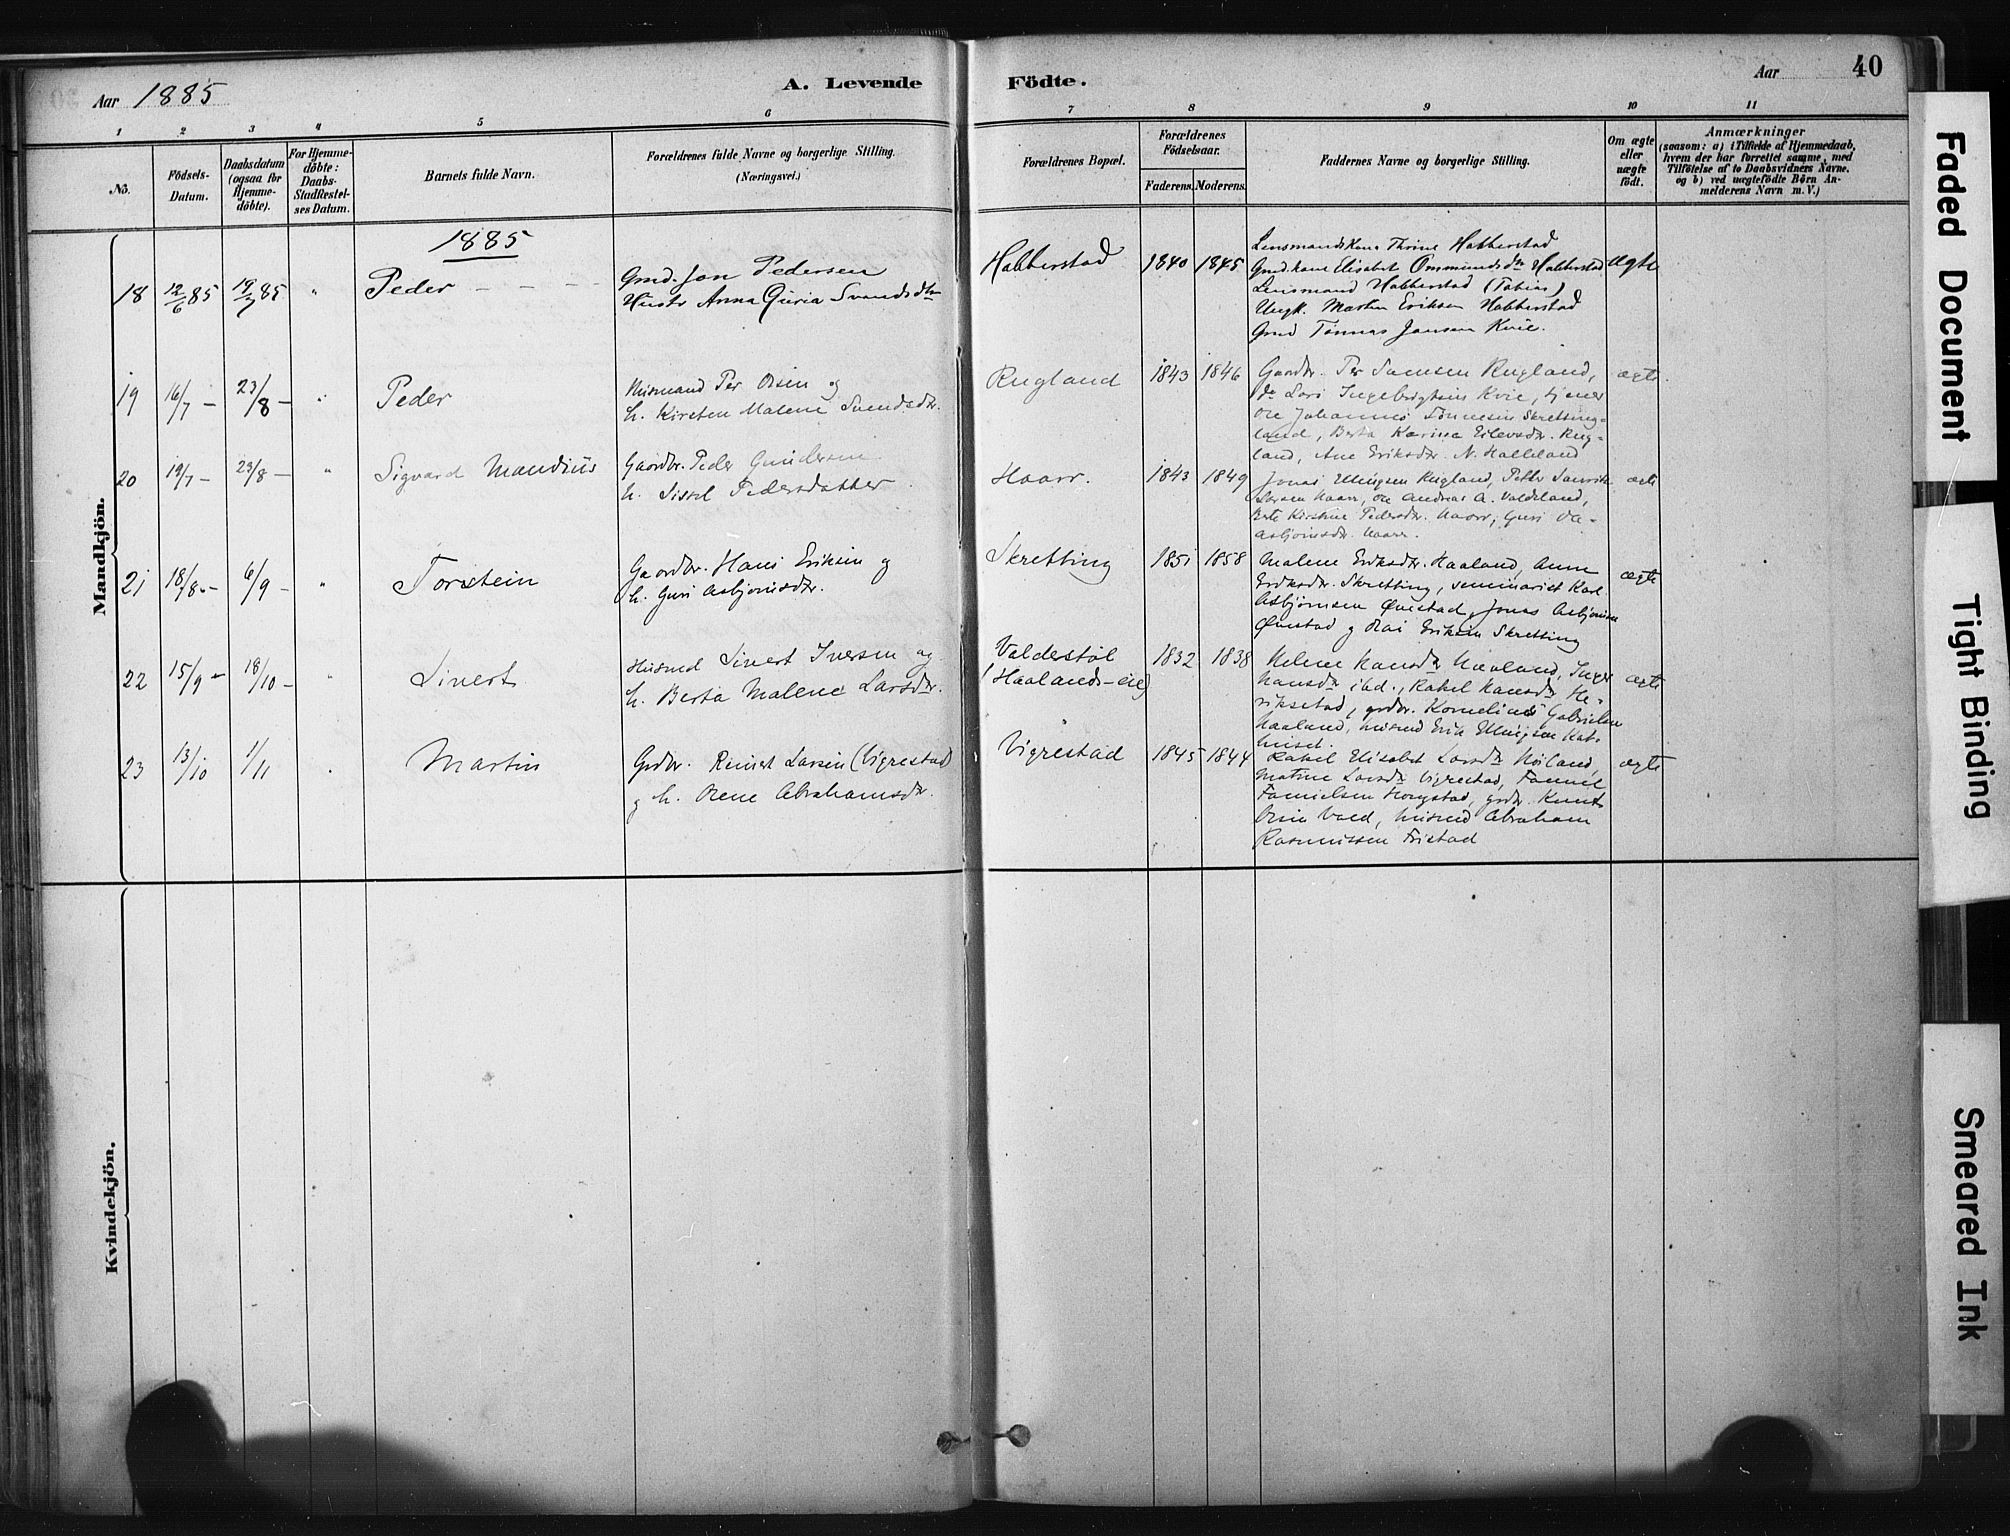 Aar 1885
A. Levende
Födte.
Aar
40
1 2 3 4 5 6 7 8 9 10 11
No.
Födsels-
Datum.
Daabsdatum
(ogsaa for
Hjemme-
döbte).
For Hjemme-
döbte:
Daabs-
Stadfæstel-
ses Datum.
Barnets fulde Navn.
Forældrenes fulde Navne og borgerlige Stilling.
(Næringsvei.)
Forældrenes Bopæl.
Forældrenes
Födselsaar.
Faderens. Moderens.
Faddernes Navne og borgerlige Stilling.
Om ægte
eller
uægte
födt.
Anmærkninger
(saasom: a) i Tilfælde af Hjemmedaab,
hvem der har forrettet samme, med
Tilföielse af to Daabsvidners Navne.
og b) ved uægtefödte Börn An-
melderens Navn m. V.)
Mandkjön.
1885
18 12/6 85 19/7 85 " Peder - - - -
Grmd. Jon Pedersen
Hustr Anna Guria Svendsdtr
Habberstad 1840 1845
Lensmandskone Thrine Habberstad
Grmd. kone Elisabet Ommundsdtr Habberstad
Lensmand Habberstad (Tobias)
Ungk. Martin Eriksen Habberstad
Grmd Tönnas Jansen Kvie.
Ægte
19 16/7 - 23/8 - " Peder
Husmand Per Olsen og
h. Kirsten Malene Svendsdtr.
Rugland 1843 1846
Gaardbr. Per Samsen Rugland,
do Lars Ingebrigtsen Kvie, tjener
Ole Johannes Tönnesen Skretting-
land, Berta Karine Eilevsdtr. Rug-
land, Ane Eriksdtr. N. Halleland
ægte.
20 19/7 - 23/8 - " Sigvard Mandius
Gaardbr. Peder Gundersen
h. Sissel Pedersdatter
Haarr. 1843 1849
Jonas Ellingsen Rugland, Petter
Larsen Haarr, Ole Andreas A. Valdeland,
Berte Kirstine Pedersdr. Haarr, Guri
Asbjörnsdr. Haarr.
ægte
21 18/8 - 6/9 - " Torstein
Gaardbr. Hans Eriksen og
h. Guri Asbjörnsdr.
Skretting 1851 1858
Malene Eriksdr. Haaland, Anne
Eriksdr. Skretting, seminarist Karl
Asbjörnsen Qvistad, Jonas Asbjörnsen
Qvistad og Eriksen Skretting
ægte
22 15/9 - 18/10 - " Sivert
Husmd Sivert Iversen og
h. Berta Malene Larsdr.
Valdestöl
(Haalands-eie) 1832 1838
Helene Hansdr Haaland, Inger
Hansdr ibd., Rakel Hansdr He-
rikstad, grdbr. Kornelius Gabrielsen
Haaland, husmd Erik Ellingsen Kat-
huset.
ægte
23 13/10 1/11 . Martin
Grdbr. Reinert Larsen (Vigrestad)
og h. Olene Abrahamsdr.
Vigrestad 1845 1844
Rakel Elisabet Larsdr Höiland,
Matine Larsdr Vigrestad,
Hongstad, grdbr. Knut
Olsen Voed, husmd Abraham
Rasmussen Fristad
ægte
Kvindekjön.
Faded Document
Tight Binding
Smeared Ink